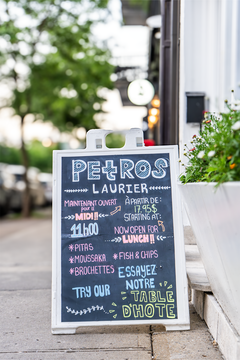 PETROS
LAURIER
MAINTENANT OUVERT
POUR LE
MIDI!
11h00
*PITAS
*MOUSSAKA
*BROCHETTES
TRY OUR
À PARTIR DE:
17.95$
STARTING AT
NOW OPEN FOR
LUNCH!!
*FISH & CHIPS
ESSAYEZ
NOTRE
TABLE
D'HÔTE